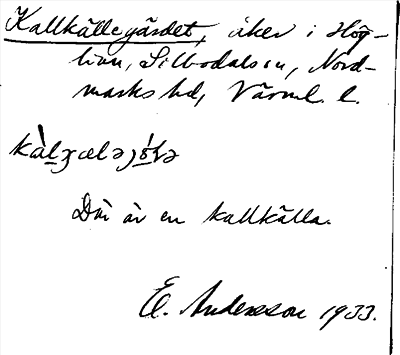 Kallkällegärdet, åker i Hög-
lian, Silbodals sn, Nord-
marks hd, Värml. l.
Där är en kallkälla.
E. Andersson 1933.